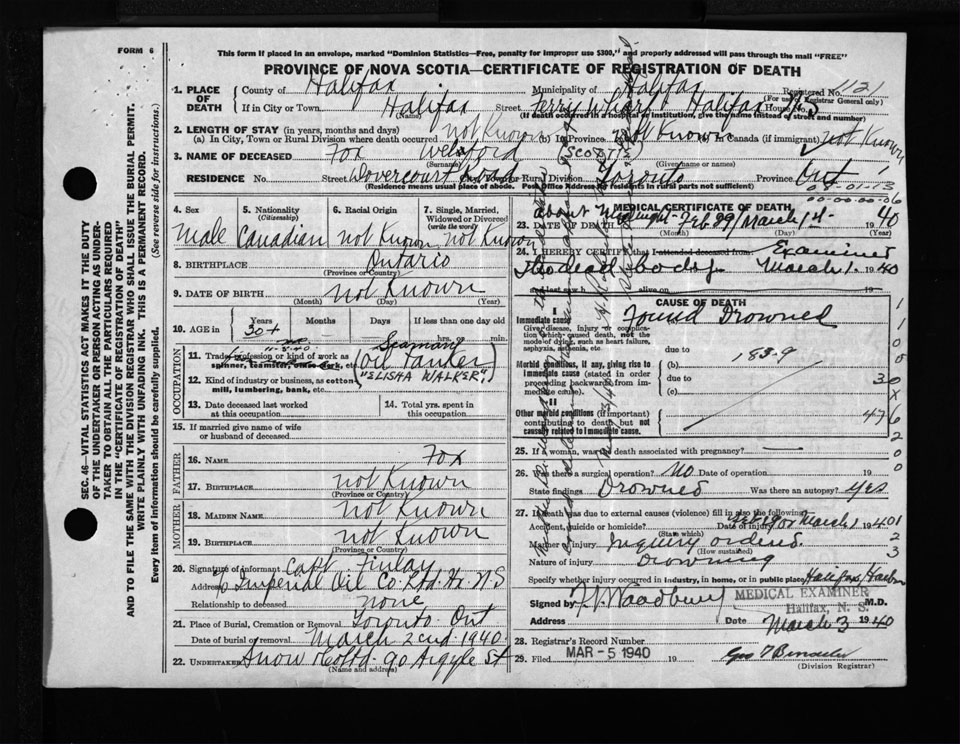 FORM 6
This form if placed in an envelope, marked "Dominion Statistics—Free, penalty for improper use $300," and properly addressed will pass through the mail "FREE"
PROVINCE OF NOVA SCOTIA—CERTIFICATE OF REGISTRATION OF DEATH
SEC. 46—VITAL STATISTICS ACT MAKES IT THE DUTY
OF THE UNDERTAKER OR PERSON ACTING AS UNDER-
TAKER TO OBTAIN ALL THE PARTICULARS REQUIRED
IN THE "CERTIFICATE OF REGISTRATION OF DEATH"
AND TO FILE THE SAME WITH THE DIVISION REGISTRAR WHO SHALL ISSUE THE BURIAL PERMIT.
WRITE PLAINLY WITH UNFADING INK. THIS IS A PERMANENT RECORD.
Every item of Information should be carefully supplied. (See reverse side for instructions.)
1. PLACE OF DEATH County of Halifax Municipality of Halifax Registered No. 1121
(For use of Registrar General only)
If in City or Town Halifax Street Ferris Wharf Halifax House No.
(Name) (If death occurred in a hospital or institution, give the name instead of street and number)
2. LENGTH OF STAY (in years, months and days)
(a) In City, Town or Rural Division where death occurred not Known (b) In Province not known (c) In Canada (if immigrant) not Known
3. NAME OF DECEASED Fox Welsford (SCOTTY)
(Surname) (Given name or names)
RESIDENCE No. Street Dovercourt Road City, Town or Rural Division Toronto Province Ont
(Residence means usual place of abode. Post Office Address for residents in rural parts not sufficient)
4. Sex Male
5. Nationality (Citizenship) Canadian
6. Racial Origin not Known
7. Single, Married, Widowed or Divorced (write the word) not Known
8. BIRTHPLACE Ontario
(Province or Country)
9. DATE OF BIRTH not Known
(Month) (Day) (Year)
10. AGE in Years Months Days If less than one day old
30+ hrs. or min.
OCCUPATION
11. Trade, profession or kind of work as spinner, teamster, office clerk, etc. Seaman (Oil Tanker
"ELISHA WALKER")
12. Kind of industry or business, as cotton mill, lumbering, bank, etc.
13. Date deceased last worked at this occupation
14. Total yrs. spent in this occupation
15. If married give name of wife or husband of deceased
FATHER
16. NAME Fox
17. BIRTHPLACE not Known
(Province or Country)
MOTHER
18. MAIDEN NAME not Known
19. BIRTHPLACE not Known
(Province or Country)
20. Signature of informant Capt. Finlay
Address c/o Imperial Oil Co. Ltd. Hx. N.S
Relationship to deceased none
21. Place of Burial, Cremation or Removal Toronto Ont
Date of burial or removal March 2nd 1940.
22. UNDERTAKER Snow & Co Ltd. 90 Argyle St
(Name and address)
MEDICAL CERTIFICATE OF DEATH
23. DATE OF DEATH about Midnight Feb 29/March 1st 1940
(Month) (Day) (Year)
24. I HEREBY CERTIFY that I attended deceased from Examined
the dead body March 1. 1940
and last saw h alive on 19
CAUSE OF DEATH
I
Immediate cause
Give disease, injury or complication which caused death, not the mode of dying, such as heart failure, asphyxia, asthenia, etc
(a) Found Drowned
due to
Morbid conditions, if any, giving rise to immediate cause (stated in order proceeding backwards from immediate cause).
(b) 183-9
due to
(c)
II
Other morbid conditions (if important) contributing to death but not causally related to immediate cause.
25. If a woman, was death associated with pregnancy?
26. Was there a surgical operation? No Date of operation 19
State findings Drowned Was there an autopsy? Yes
27. If death was due to external causes (violence) fill in also the following:
Accident, suicide or homicide? Date of injury Feb 29 or March 1 1940
(State which)
Manner of injury Inquiry ordered.
(How sustained)
Nature of injury Drowning
Specify whether injury occurred in industry, in home, or in public place Halifax Harbor
Signed by M.D.
MEDICAL EXAMINER
Halifax, N. S.
Address Date March 3 1940
28. Registrar's Record Number
29. Filed MAR -5 1940 19
(Division Registrar)